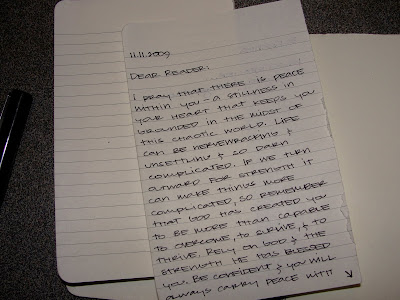 11.11.2009
DEAR READER:
I PRAY THAT THERE IS PEACE
WITHIN YOU - A STILLNESS IN
YOUR HEART THAT KEEPS YOU
GROUNDED IN THE MIDST OF
THIS CHAOTIC WORLD. LIFE
CAN BE NERVEWRACKING &
UNSETTLING & SO DARN
COMPLICATED. IF WE TURN
OUTWARD FOR STRENGTH IT
CAN MAKE THINGS MORE
COMPLICATED, SO REMEMBER
THAT GOD HAS CREATED YOU
TO BE MORE THAN CAPABLE
TO OVERCOME, TO SURVIVE, & TO
THRIVE. RELY ON GOD & THE
STRENGTH HE HAS BLESSED
YOU. BE CONFIDENT & YOU WILL
ALWAYS CARRY PEACE WITH